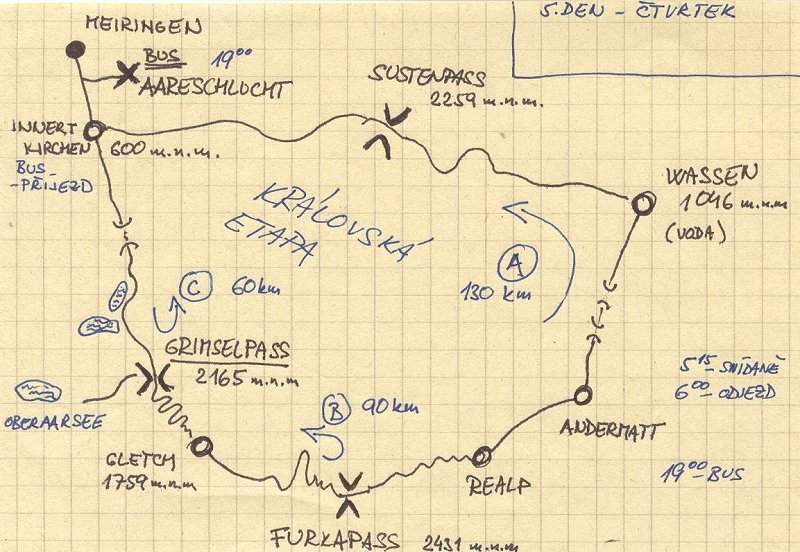 5. DEN - ČTVRTEK
MEIRINGEN
BUS 19⁰⁰
AARESCHLUCHT
SUSTENPASS
2259 m.n.m.
INNERT
KIRCHEN
600 m.n.m.
BUS -
-PŘÍJEZD
WASSEN
1046 m.n.m
(VODA)
KRÁLOVSKÁ
ETAPA
A
130 km
C
60 km
GRIMSELPASS
2165 m.n.m
5¹⁵- SNÍDANĚ
6⁰⁰- ODJEZD
OBERAARSEE
B
90 km
ANDERMATT
GLETCH
1759 m.n.m
REALP
19⁰⁰-BUS
FURKAPASS 2431 m.n.m